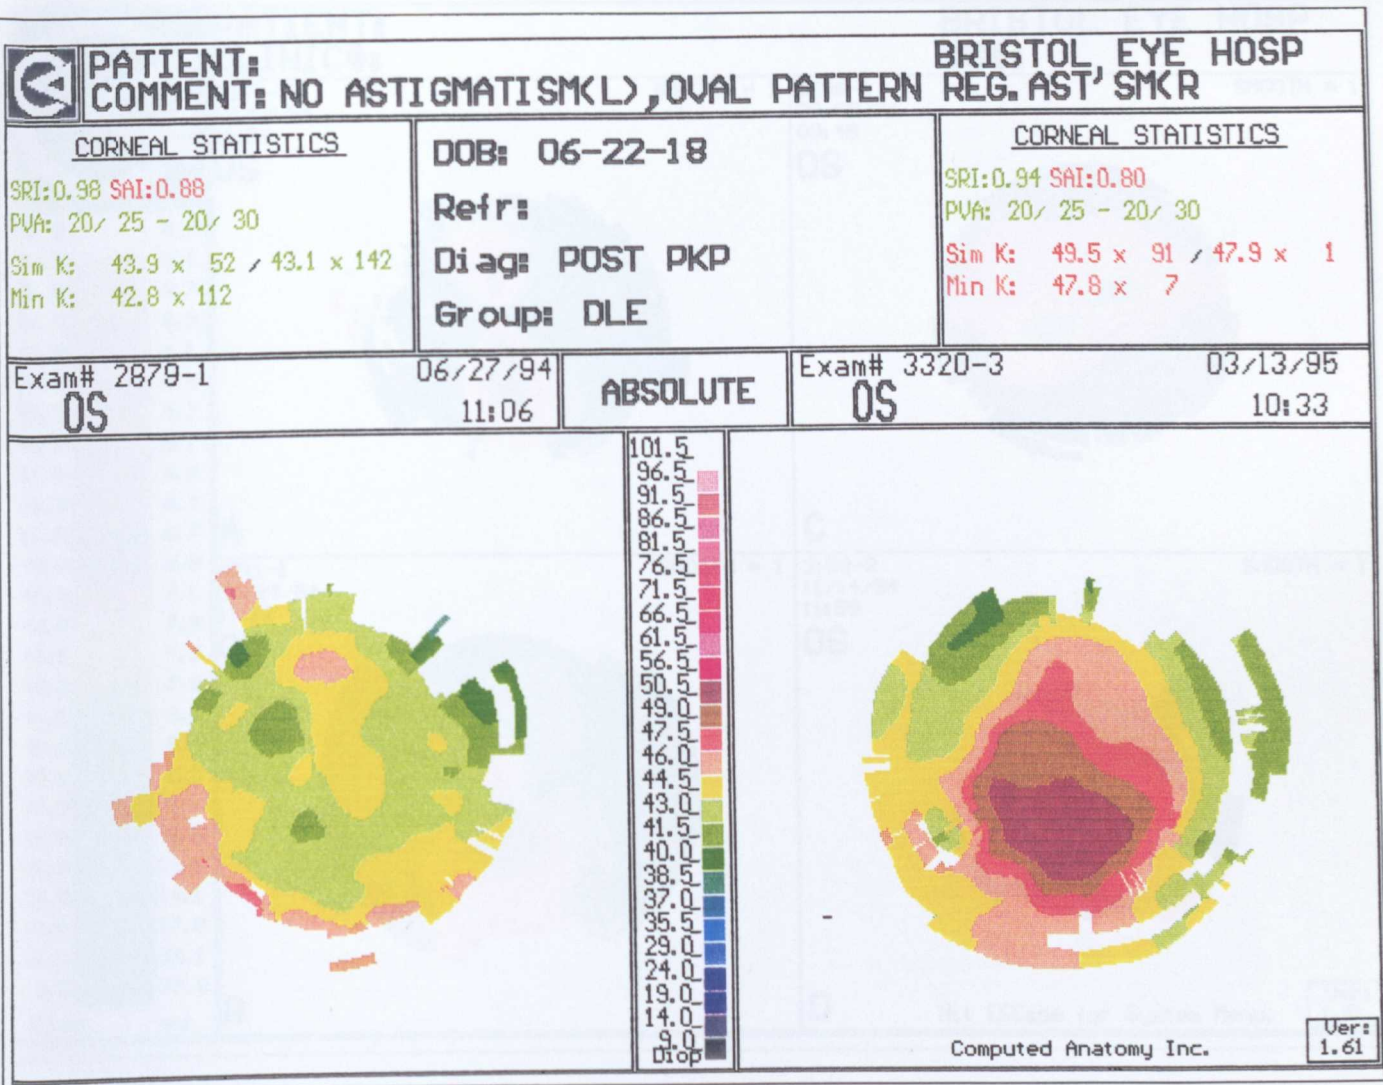 PATIENT:
BRISTOL EYE HOSP
COMMENT: NO ASTIGMATISM(L),OVAL PATTERN REG.AST'SM(R
CORNEAL STATISTICS
SRI:0.98 SAI:0.88
PVA: 20/ 25 - 20/ 30
Sim K: 43.9 x 52 / 43.1 x 142
Min K: 42.8 x 112
DOB: 06-22-18
Refr:
Diag: POST PKP
Group: DLE
CORNEAL STATISTICS
SRI:0.94 SAI:0.80
PVA: 20/ 25 - 20/ 30
Sim K: 49.5 x 91 / 47.9 x 1
Min K: 47.8 x 7
Exam# 2879-1 06/27/94
OS 11:06
ABSOLUTE
Exam# 3320-3 03/13/95
OS 10:33
101.5
96.5
91.5
86.5
81.5
76.5
71.5
66.5
61.5
56.5
50.5
49.0
47.5
46.0
44.5
43.0
41.5
40.0
38.5
37.0
35.5
29.0
24.0
19.0
14.0
9.0
Diop
Computed Anatomy Inc.
Ver:
1.61